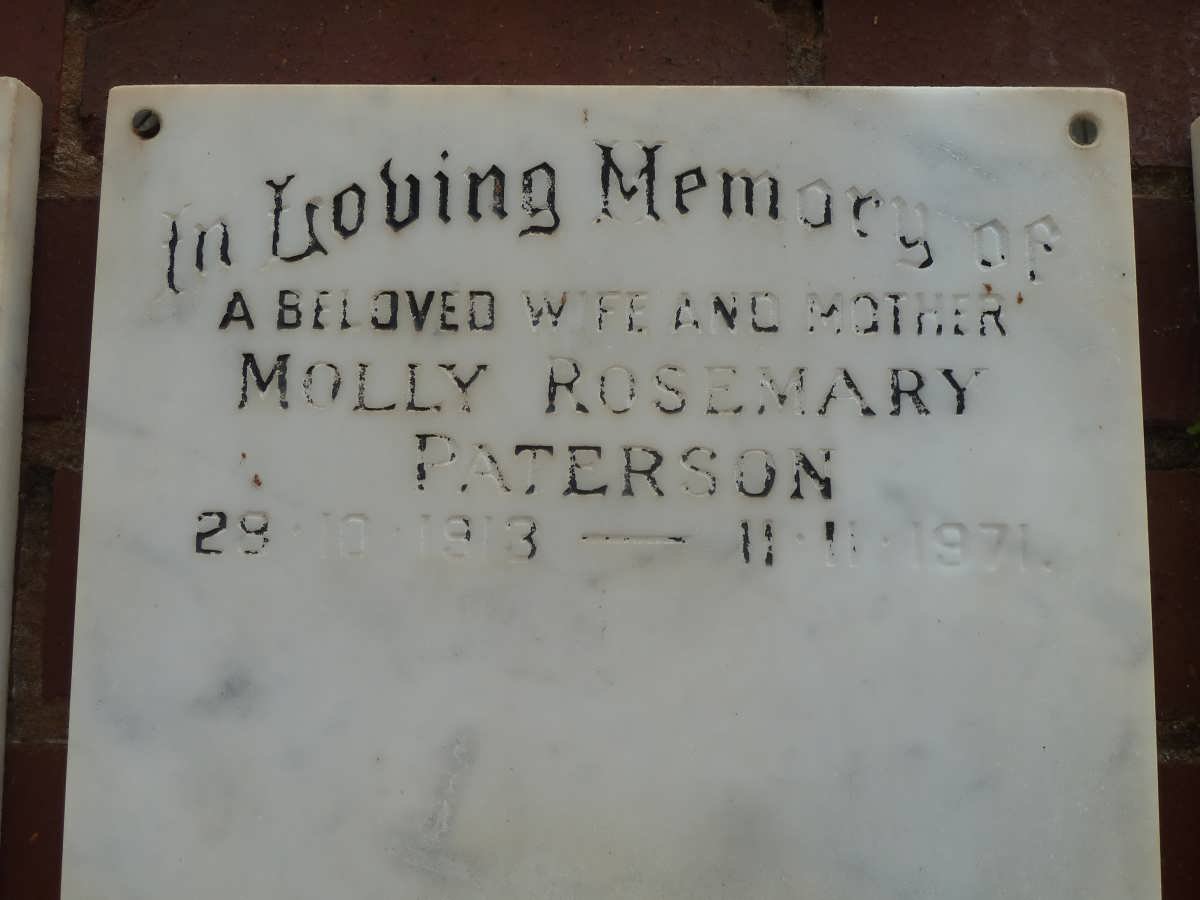 In Loving Memory of
A BELOVED WIFE AND MOTHER
MOLLY ROSEMARY
PATERSON
29·10·1913 — 11·11·1971.